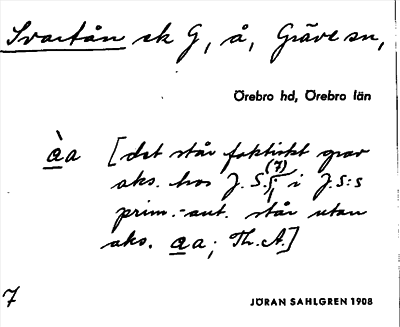 Svartån ek G, å, Gräve sn,
Örebro hd, Örebro län
àa [det står faktiskt grav
aks. hos J. S. (7) i J.S:s
prim.-ant. står utan
aks. aa; Th.A.]
7
JÖRAN SAHLGREN 1908